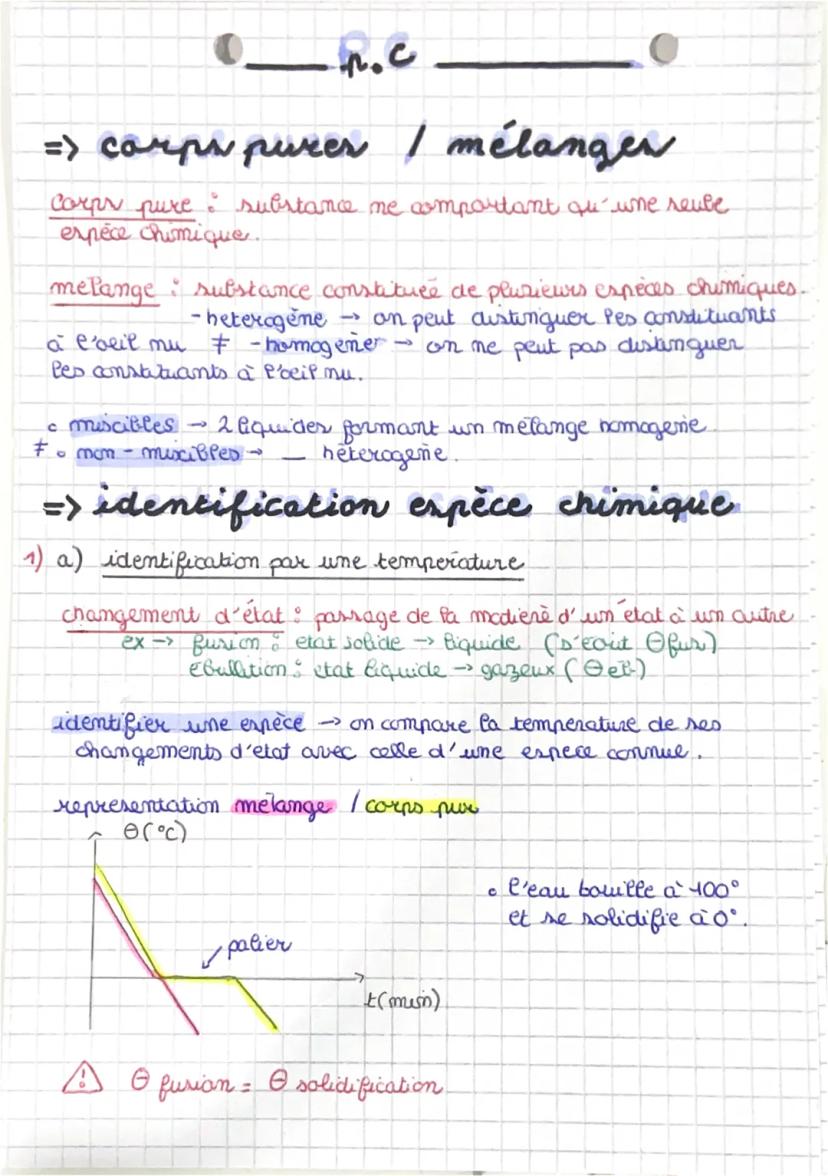 P.C
=> corps pures / mélanges
corps pure : substance ne comportant qu'une seule
espèce chimique.
melange : substance constituée de plusieurs espèces chimiques.
- heterogène → on peut distinguer les constituants
à l'oeil nu ≠ - homogène → on ne peut pas distinguer
les constituants à l'oeil nu.
∘ miscibles → 2 liquides formant un mélange homogene.
≠ ∘ non-miscibles → __ hétérogene.
=> identification espèce chimique
1) a) identification par une temperature
changement d'état : passage de la matière d'un état à un autre
ex → fusion : etat solide → liquide (s'écrit θfus)
ebullition : etat liquide → gazeux (θeb)
identifier une espèce → on compare la température de ses
changements d'etat avec celle d'une espece connue.
representation mélange / corps pur
θ(°c)
∘ l'eau bouille à 100°
et se solidifie à 0°.
palier
t(min)
⚠ θ fusion = θ solidification